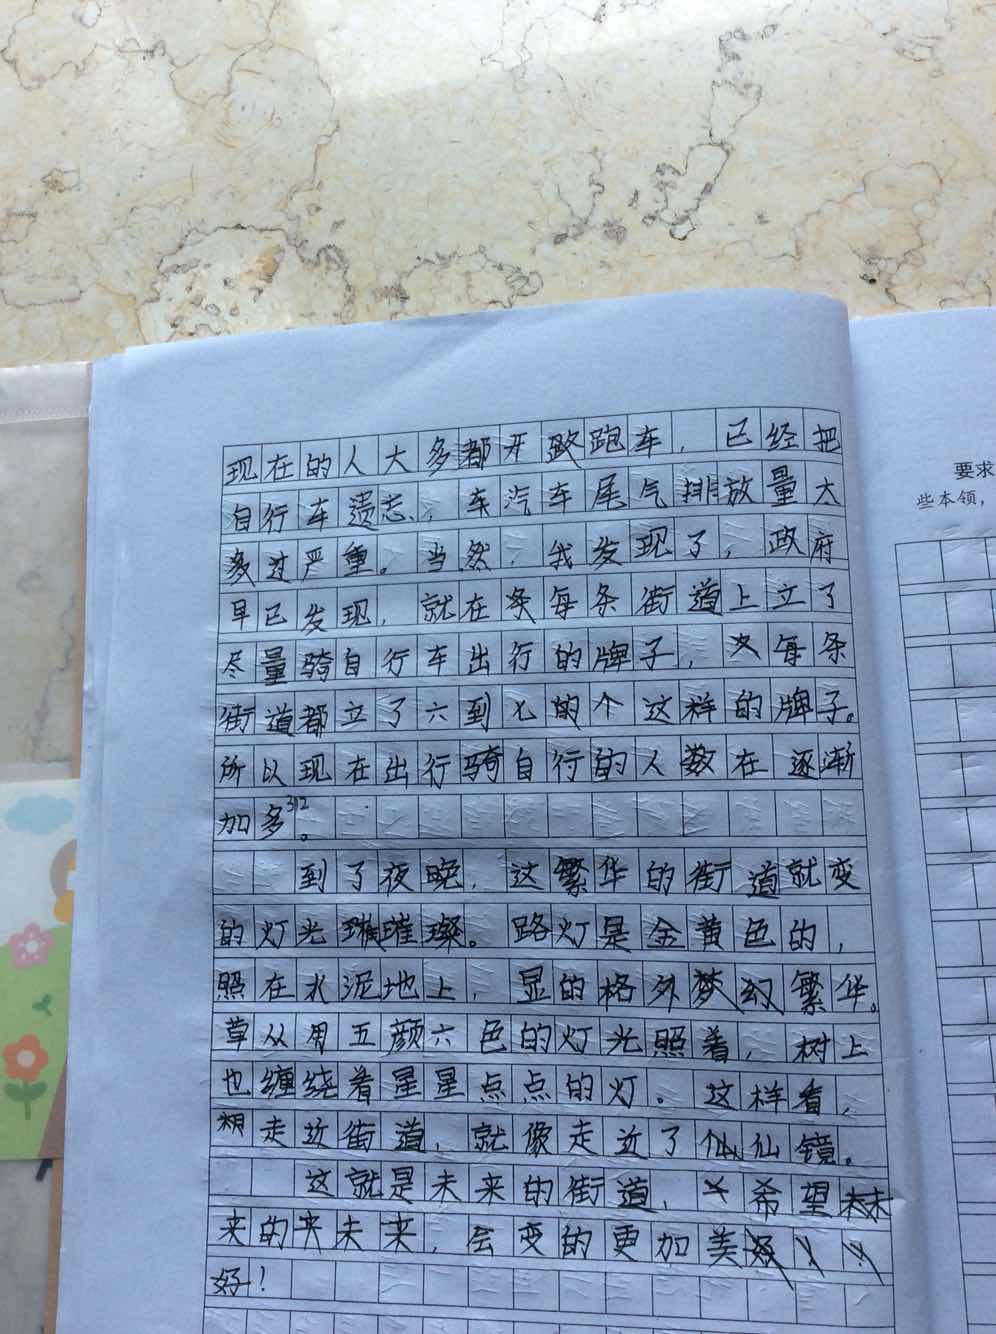 现在的人大多都开跑车，已经把
自行车遗志，车汽车尾气排放量太
多过严重。当然，我发现了，政府
早已发现，就在每条街道上立了
尽量骑自行车出行的牌子，每条
街道都立了六到七的个这样的牌子。
所以现在出行骑自行的人数在逐渐
加多312。
到了夜晚，这繁华的街道就变
的灯光璀璨。路灯是金黄色的，
照在水泥地上，显的格外梦幻繁华。
草从用五颜六色的灯光照着，树上
也缠绕着星星点点的灯。这样看，
走近街道，就像走近了仙镜。
这就是未来的街道，希望
来的未来，会变的更加美
好！
要求
些本领，